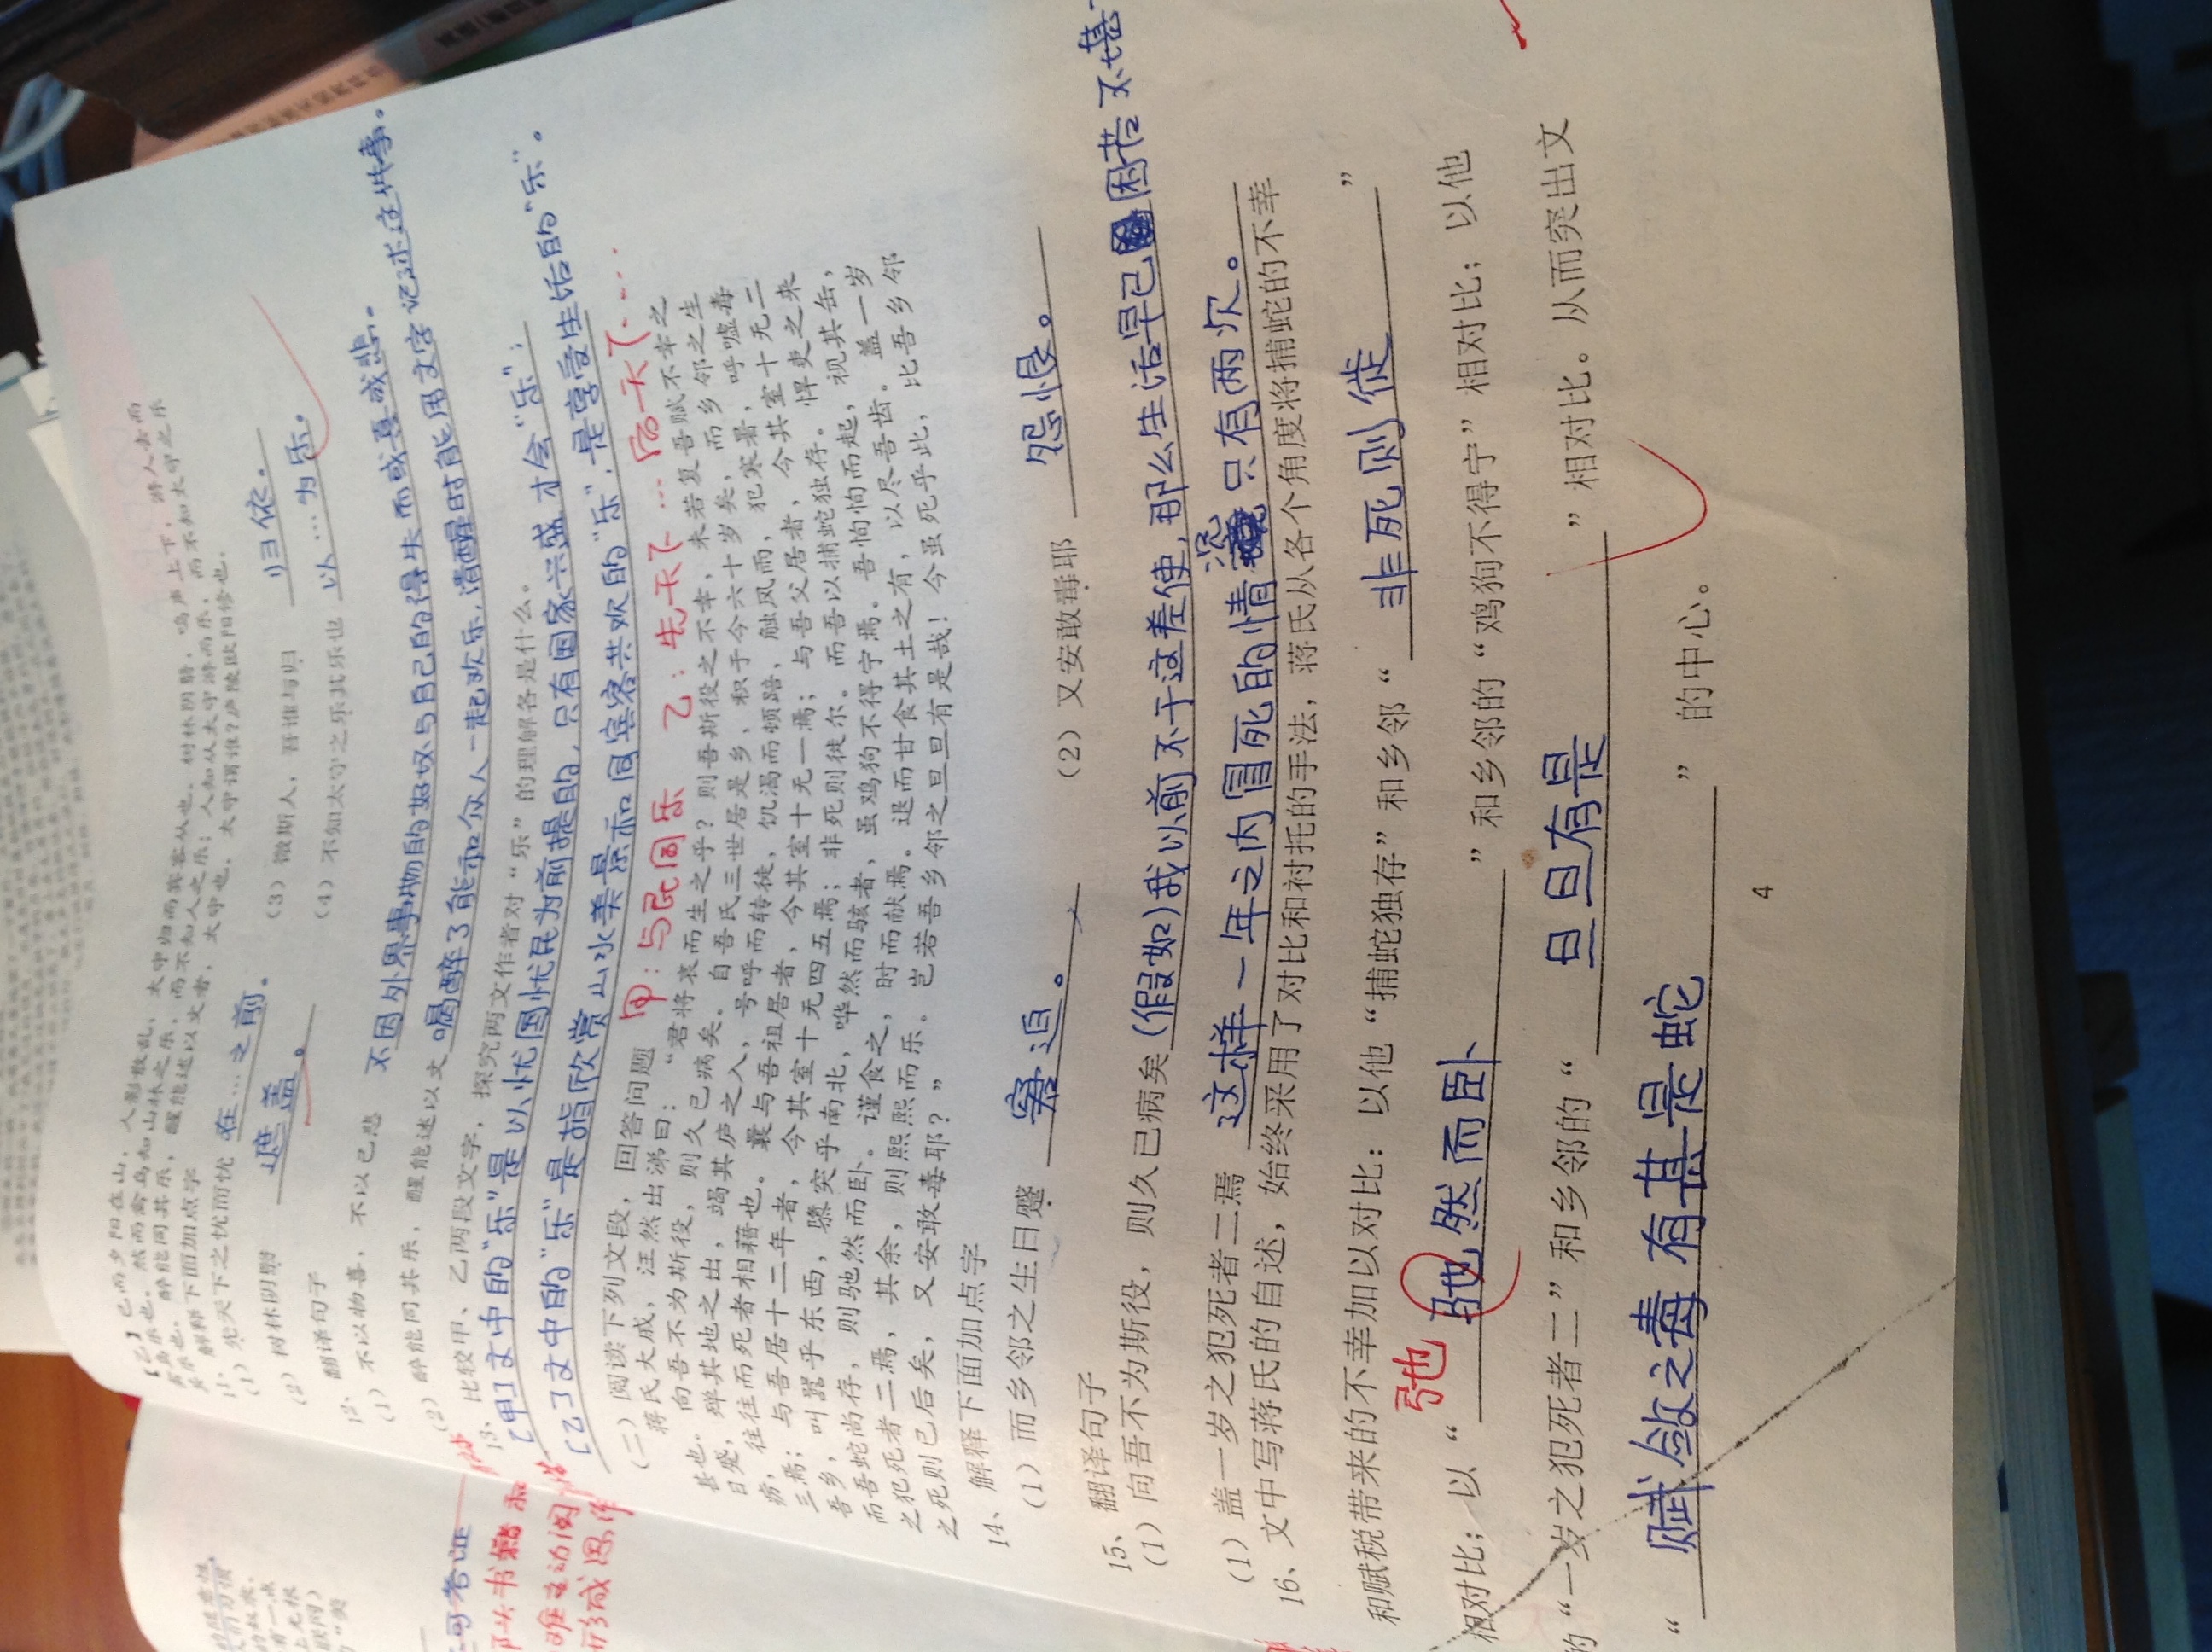 【乙】已而夕阳在山，人影散乱，太守归而宾客从也。树林阴翳，鸣声上下，游人去而
禽鸟乐也。然而禽鸟知山林之乐，而不知人之乐；人知从太守游而乐，而不知太守之乐
其乐也。醉能同其乐，醒能述以文者，太守也。太守谓谁？庐陵欧阳修也。
11、解释下面加点字
(1) 先天下之忧而忧 在…之前。 (3) 微斯人，吾谁与归 归依。
(2) 树林阴翳 遮盖。 (4) 不知太守之乐其乐也 以…为乐。
12、翻译句子
(1) 不以物喜，不以己悲 不因外界事物的好坏与自己的得失而或喜或悲。
(2) 醉能同其乐，醒能述以文 喝醉了能和众人一起欢乐，清醒时能用文字记述这件事。
13、比较甲、乙两段文字，探究两文作者对“乐”的理解各是什么。
[甲]文中的“乐”是以忧国忧民为前提的，只有国家兴盛才会“乐”；
[乙]文中的“乐”是指欣赏山水美景和同宾客共欢的“乐”，是享受生活的“乐”。
(二) 阅读下列文段，回答问题 甲：与民同乐 乙：先天下…后天下…
蒋氏大戚，汪然出涕曰：“君将哀而生之乎？则吾斯役之不幸，未若复吾赋不幸之
甚也。向吾不为斯役，则久已病矣。自吾氏三世居是乡，积于今六十岁矣，而乡邻之生
日蹙，殚其地之出，竭其庐之入，号呼而转徙，饥渴而顿踣，触风雨，犯寒暑，呼嘘毒
疠，往往而死者相藉也。曩与吾祖居者，今其室十无一焉；与吾父居者，今其室十无二
三焉；与吾居十二年者，今其室十无四五焉；非死则徙尔。而吾以捕蛇独存。悍吏之来
吾乡，叫嚣乎东西，隳突乎南北，哗然而骇者，虽鸡狗不得宁焉。吾恂恂而起，视其缶，
而吾蛇尚存，则弛然而卧。谨食之，时而献焉。退而甘食其土之有，以尽吾齿。盖一岁
之犯死者二焉，其余，则熙熙而乐。岂若吾乡邻之旦旦有是哉！今虽死乎此，比吾乡邻
之死则已后矣，又安敢毒耶？”
14、解释下面加点字
(1) 而乡邻之生日蹙 窘迫。 (2) 又安敢毒耶 怨恨。
15、翻译句子
(1) 向吾不为斯役，则久已病矣 (假如)我以前不干这差使，那么生活早已困苦不堪
(1) 盖一岁之犯死者二焉 这样一年之内冒死的情况只有两次。
16、文中写蒋氏的自述，始终采用了对比和衬托的手法，蒋氏从各个角度将捕蛇的不幸
和赋税带来的不幸加以对比：以他“捕蛇独存”和乡邻“非死则徙”
弛
相对比；以“驰然而卧”和乡邻的“鸡狗不得宁”相对比；以他
的“一岁之犯死者二”和乡邻的“旦旦有是”相对比。从而突出文
“赋敛之毒有甚是蛇”的中心。
4
的随意性
人们习惯
的奴隶。
有一点
上无根
联网)
”美
可考证